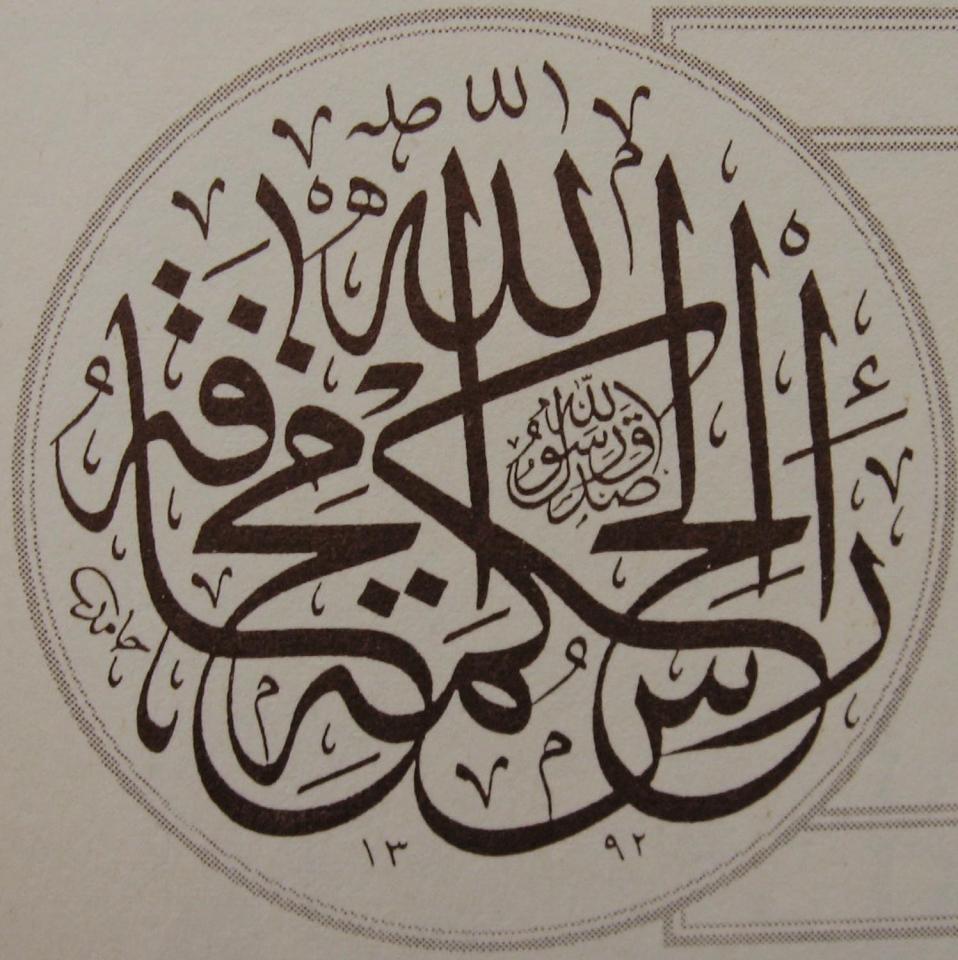 رَأْسُ الْحِكْمَةِ مَخَافَةُ اللهِ
صدق رسول الله
حامد
١٣٩٢